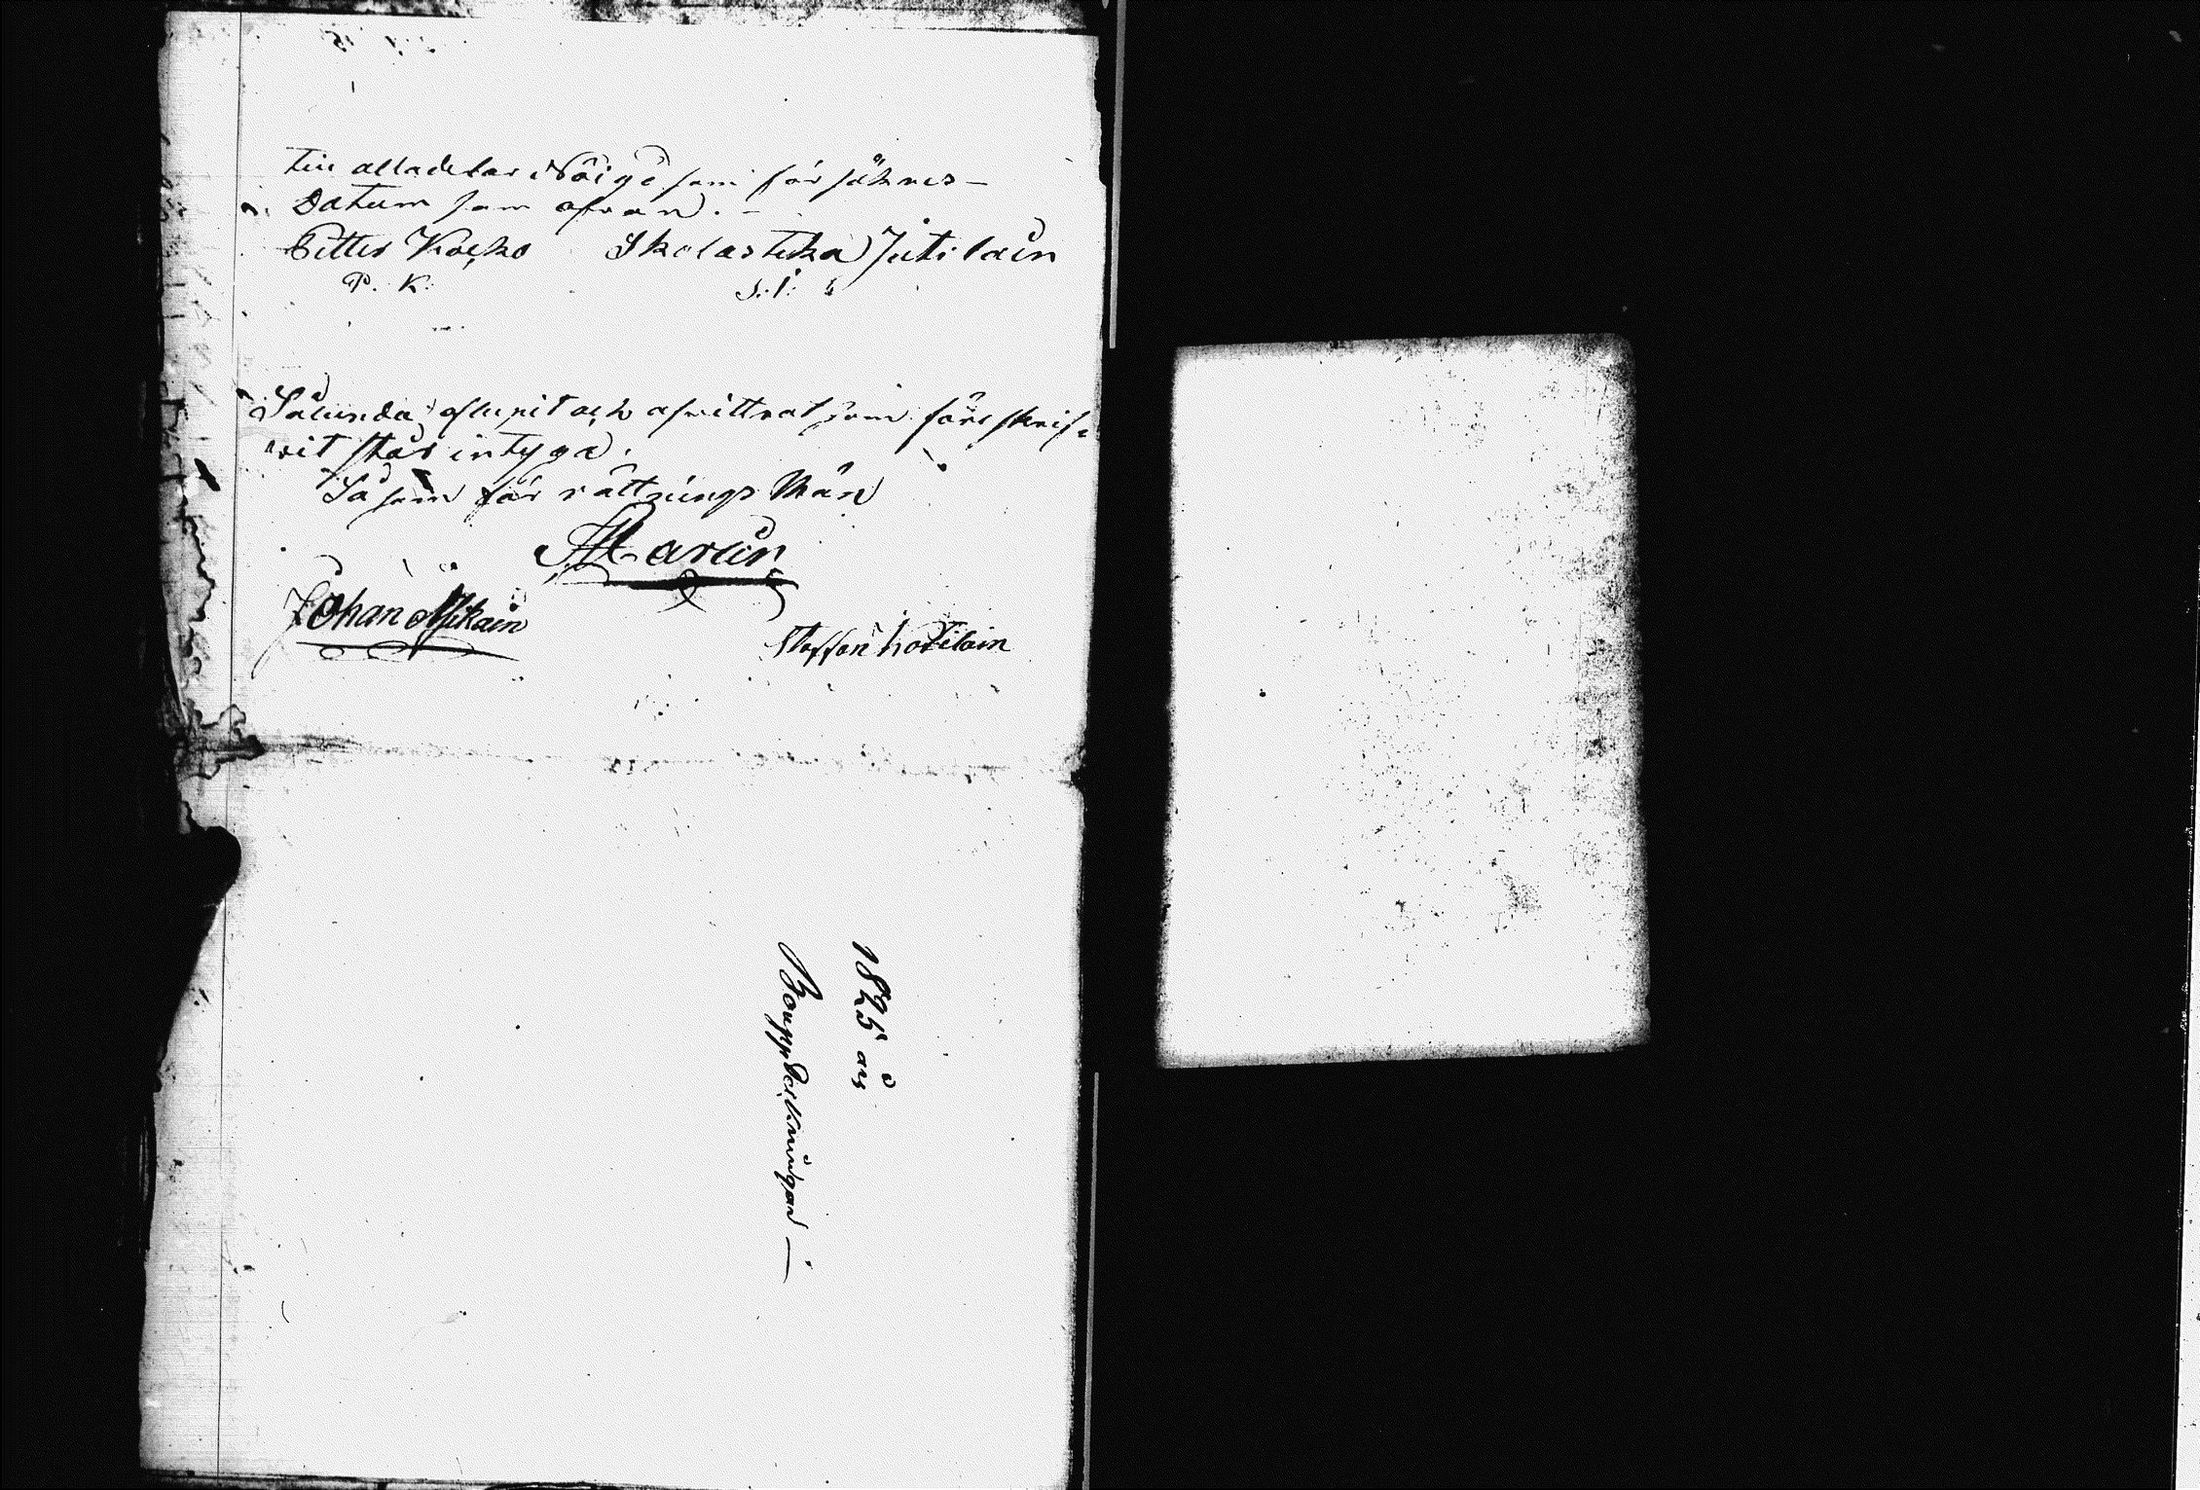 till alla delar Nöige som försökres –
Datum som ofvan. –
Petter Kocko Skolastika Jutilain
P. K. S. J.
Sålunda aflupit och afvittrat som före skrif-
vit står intygar
Så som för rättnings Män
Marlin
Johan Mikain
Staffan Kotilain
1825 års
Bouppteckningar –